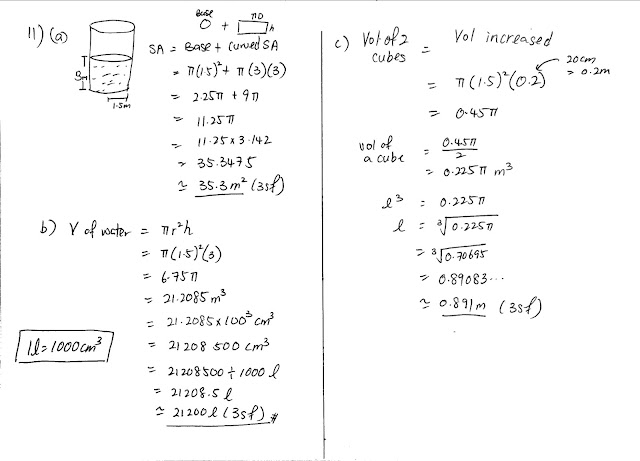 11) (a)
Base + πD
h
3
1.5m
SA = Base + Curved SA
= π(1.5)² + π(3)(3)
= 2.25π + 9π
= 11.25π
= 11.25 x 3.142
= 35.3475
≈ 35.3 m² (3sf)
b) V of water = πr²h
= π(1.5)²(3)
= 6.75π
= 21.2085 m³
= 21.2085 x 100³ cm³
= 21208 500 cm³
= 21208500 ÷ 1000 l
= 21208.5 l
≈ 21200 l (3sf) #
1l = 1000cm³
c) Vol of 2 cubes = Vol increased
= π(1.5)²(0.2)
20cm
= 0.2m
= 0.45π
vol of a cube = 0.45π / 2
= 0.225π m³
l³ = 0.225π
l = ³√0.225π
= ³√0.70695
= 0.89083...
≈ 0.891m (3sf)